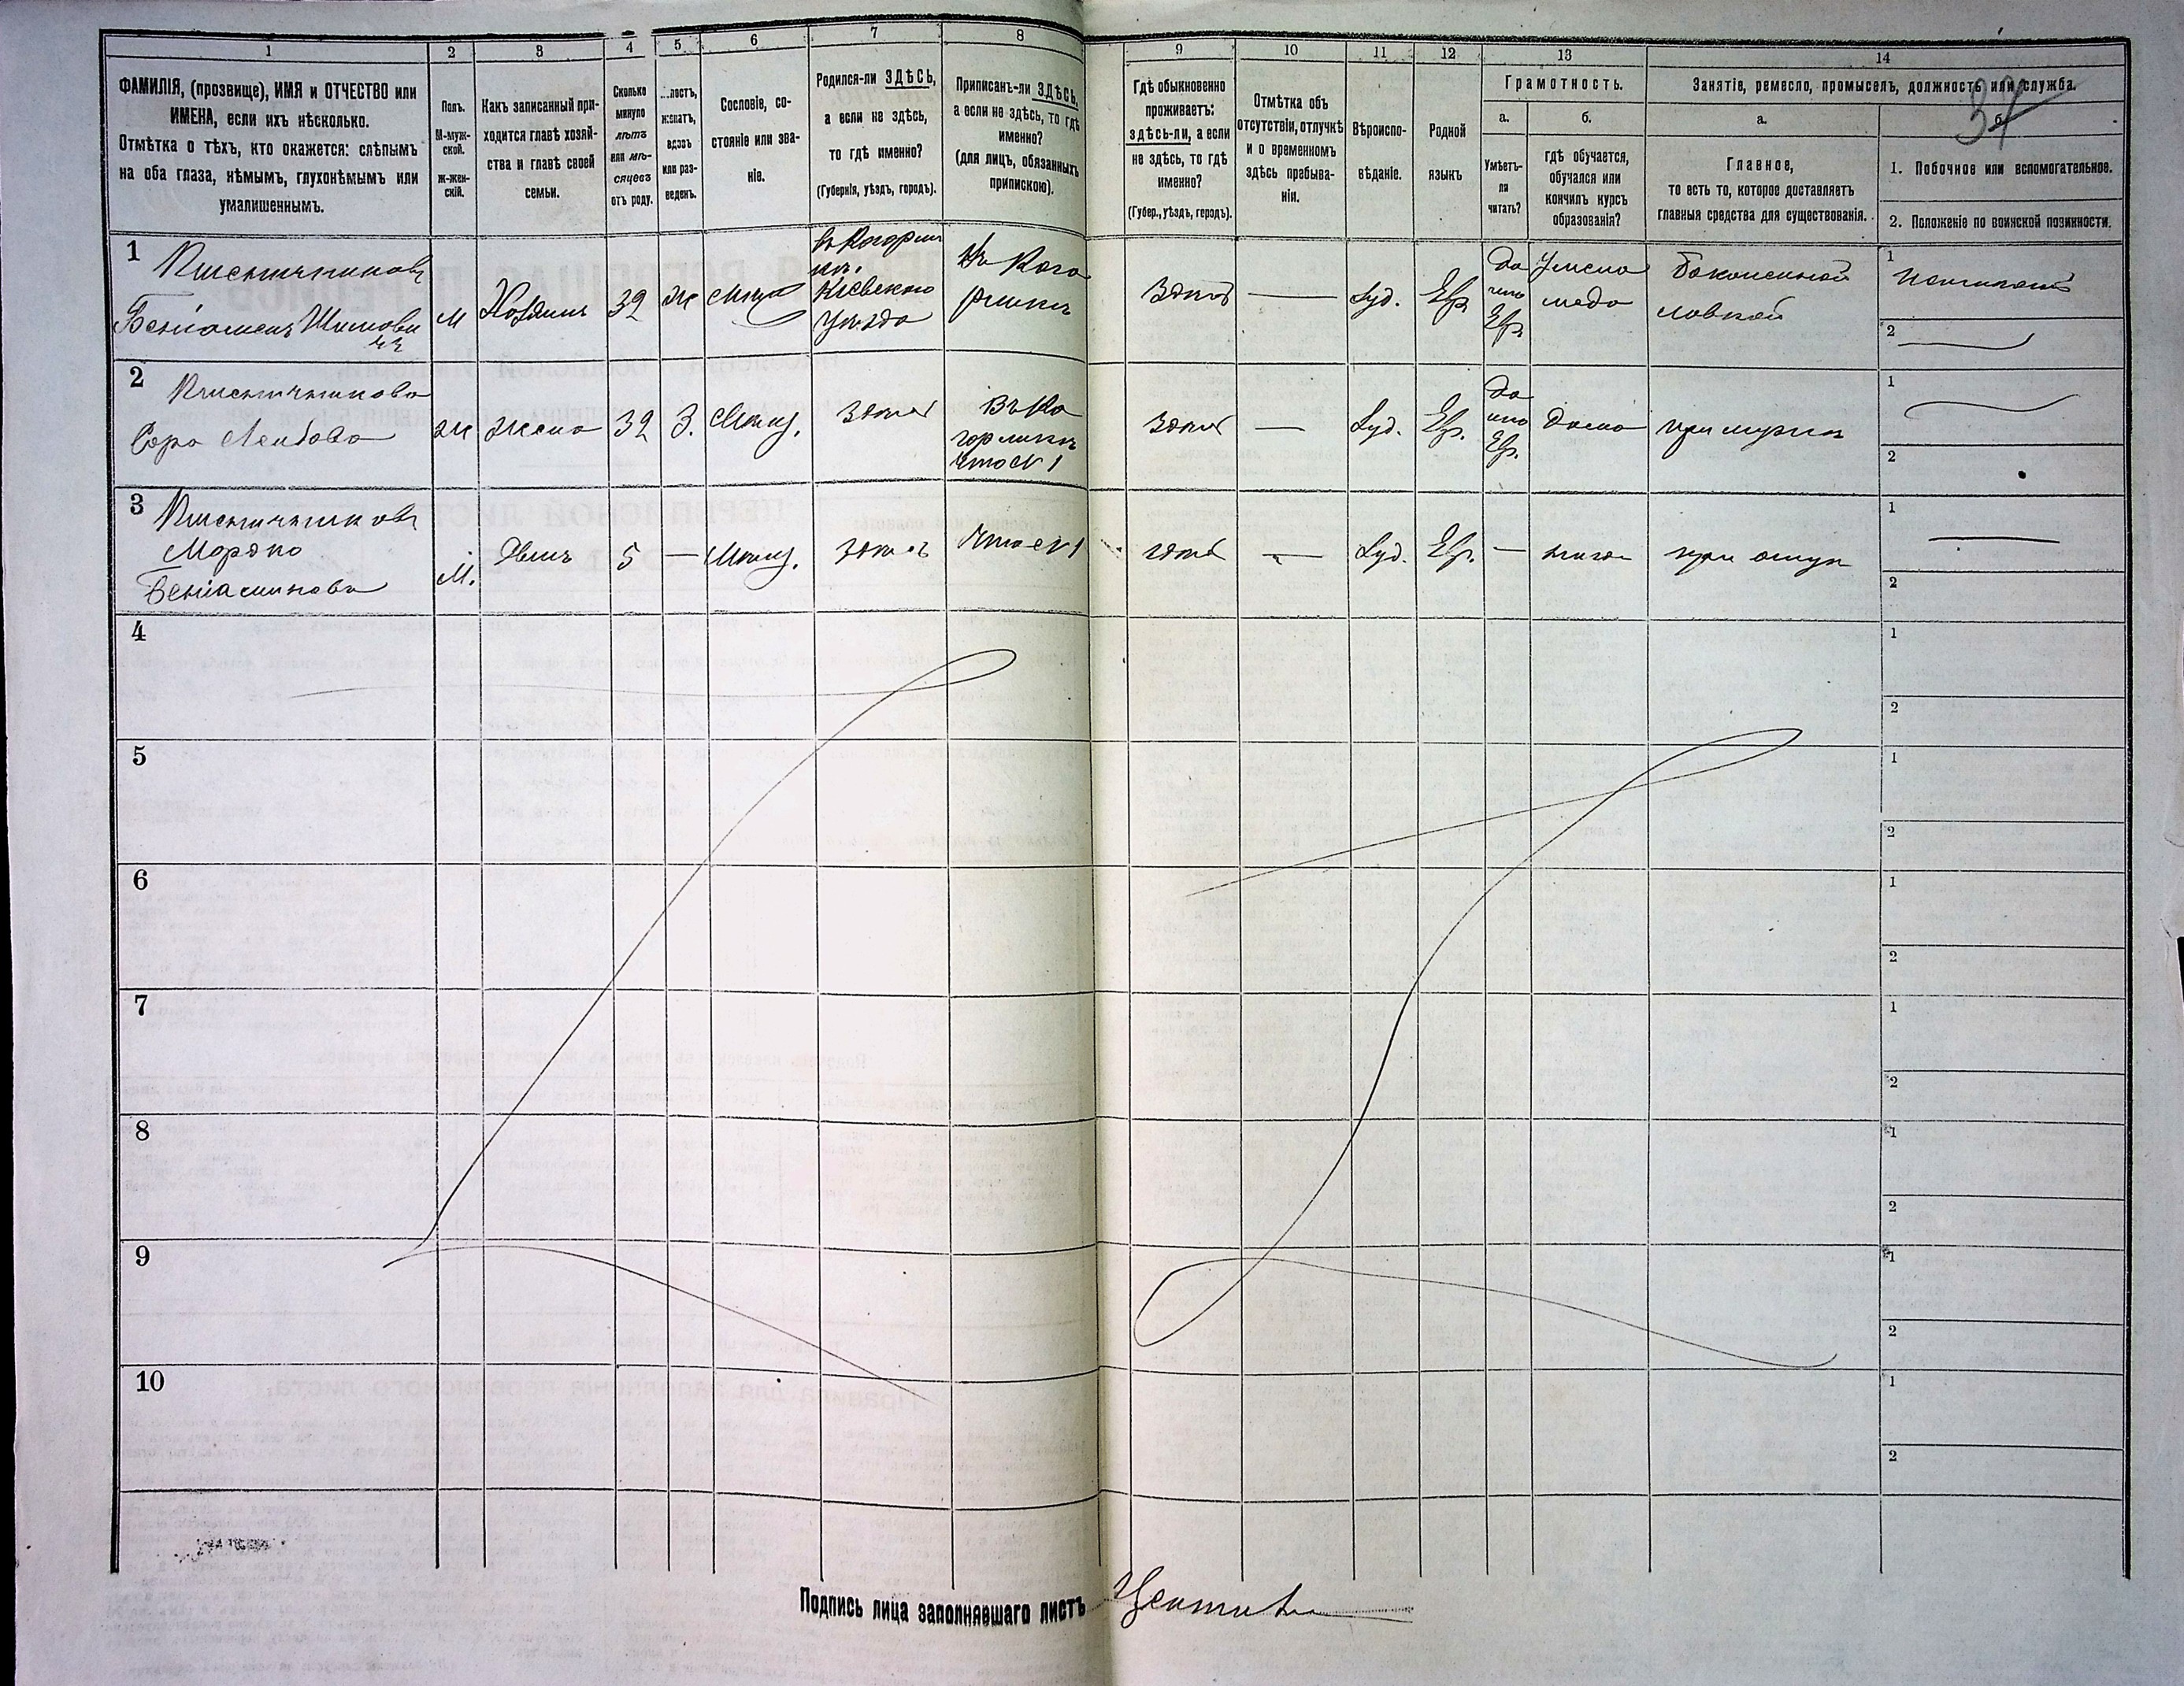 1 2 3 4 5 6 7 8 9 10 11 12 13 14
ФАМИЛІЯ, (прозвище), ИМЯ и ОТЧЕСТВО или
ИМЕНА, если ихъ нѣсколько.
Отмѣтка о тѣхъ, кто окажется: слѣпымъ
на оба глаза, нѣмымъ, глухонѣмымъ или
умалишеннымъ.
Полъ.
М-муж-
ской.
ж-жен-
скій.
Какъ записанный при-
ходится главѣ хозяй-
ства и главѣ своей
семьи.
Сколько
минуло
лѣтъ
или мѣ-
сяцевъ
отъ роду.
..лостъ,
женатъ,
вдовъ
или раз-
веденъ.
Сословіе, со-
стояніе или зва-
ніе.
Родился-ли ЗДѢСЬ,
а если не здѣсь,
то гдѣ именно?
(Губернія, уѣздъ, городъ).
Приписанъ-ли ЗДѢСЬ,
а если не здѣсь, то гдѣ
именно?
(для лицъ, обязанныхъ
припискою).
Гдѣ обыкновенно
проживаетъ:
здѣсь-ли, а если
не здѣсь, то гдѣ
именно?
(Губер., уѣздъ, городъ).
Отмѣтка объ
отсутствіи, отлучкѣ
и о временномъ
здѣсь пребыва-
ніи.
Вѣроиспо-
вѣданіе.
Родной
языкъ
Грамотность.
а.
Умѣетъ-
ли
читать?
б.
гдѣ обучается,
обучался или
кончилъ курсъ
образованія?
Занятіе, ремесло, промыселъ, должность или служба.
а.
Главное,
то есть то, которое доставляетъ
главныя средства для существованія.
б.
1. Побочное или вспомогательное.
2. Положеніе по воинской повинности.
1
Пшеничниковъ
Беніаминъ Шимови
чъ
М
Хозяинъ
32
Ж
Кіевскаго
уѣзда
Здѣсь
Іуд.
Евр.
да
1
2
2
Пшеничникова
Сора Лейбова
Ж
жена
32
З.
Мѣщ.
Здѣсь
Въ Ка
горликѣ
Что и № 1
Здѣсь
—
Іуд.
Евр.
да
Евр.
Дома
при мужѣ
1
2
3
Пшеничниковъ
Мордко
Беніаминовъ
М.
Сынъ
5
—
Мѣщ.
Здѣсь
Что и № 1
здѣсь
—
Іуд.
Евр.
—
при отцѣ
1
2
4
1
2
5
1
2
6
1
2
7
1
2
8
1
2
9
1
2
10
1
2
Подпись лица заполнявшаго листъ